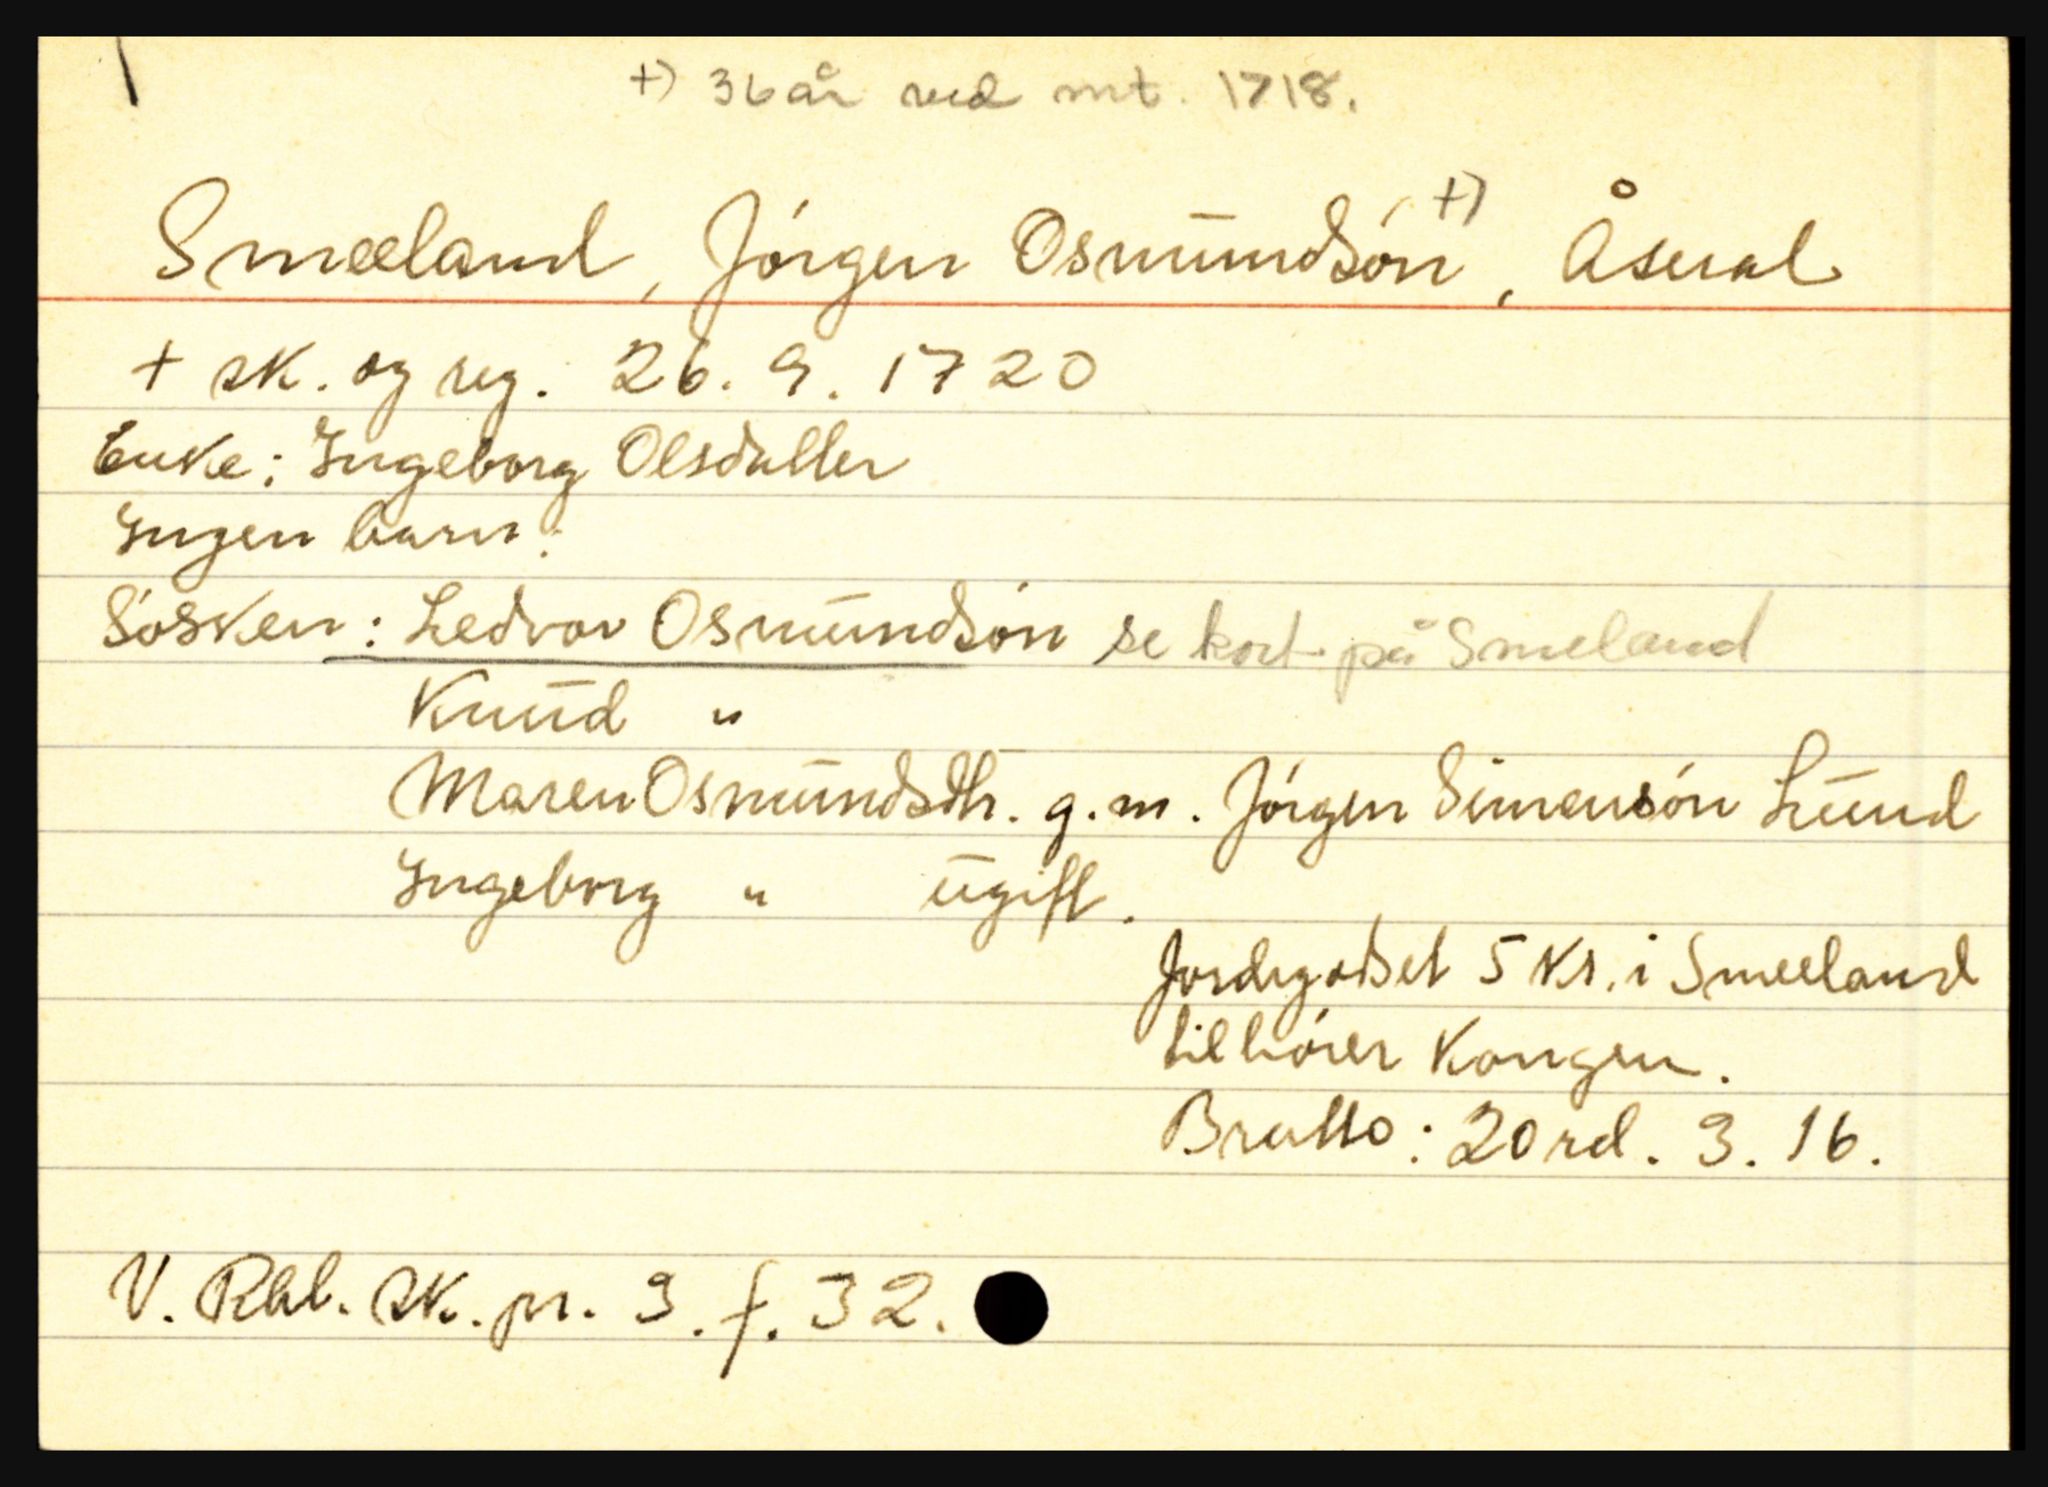 +) 36 år ved mt. 1718.
Smeeland, Jórgen Osmūndsón +), Åseral
+ sk. og reg. 26. 9. 1720
Enke: Ingeborg Olsdatter
Ingen barn.
Sósken: Ledvor Osmūndsón se kort på Smeland
Knūd "
Maren Osmūndsdtr. g.m. Jórgen Simensón Lūnd
Ingeborg " ūgift.
Jordegodset 5 kr. i Smeeland
tilhórer Kongen.
Brutto: 20 rd. 3. 16.
V. Rbl. sk. pr. 3. f. 32.